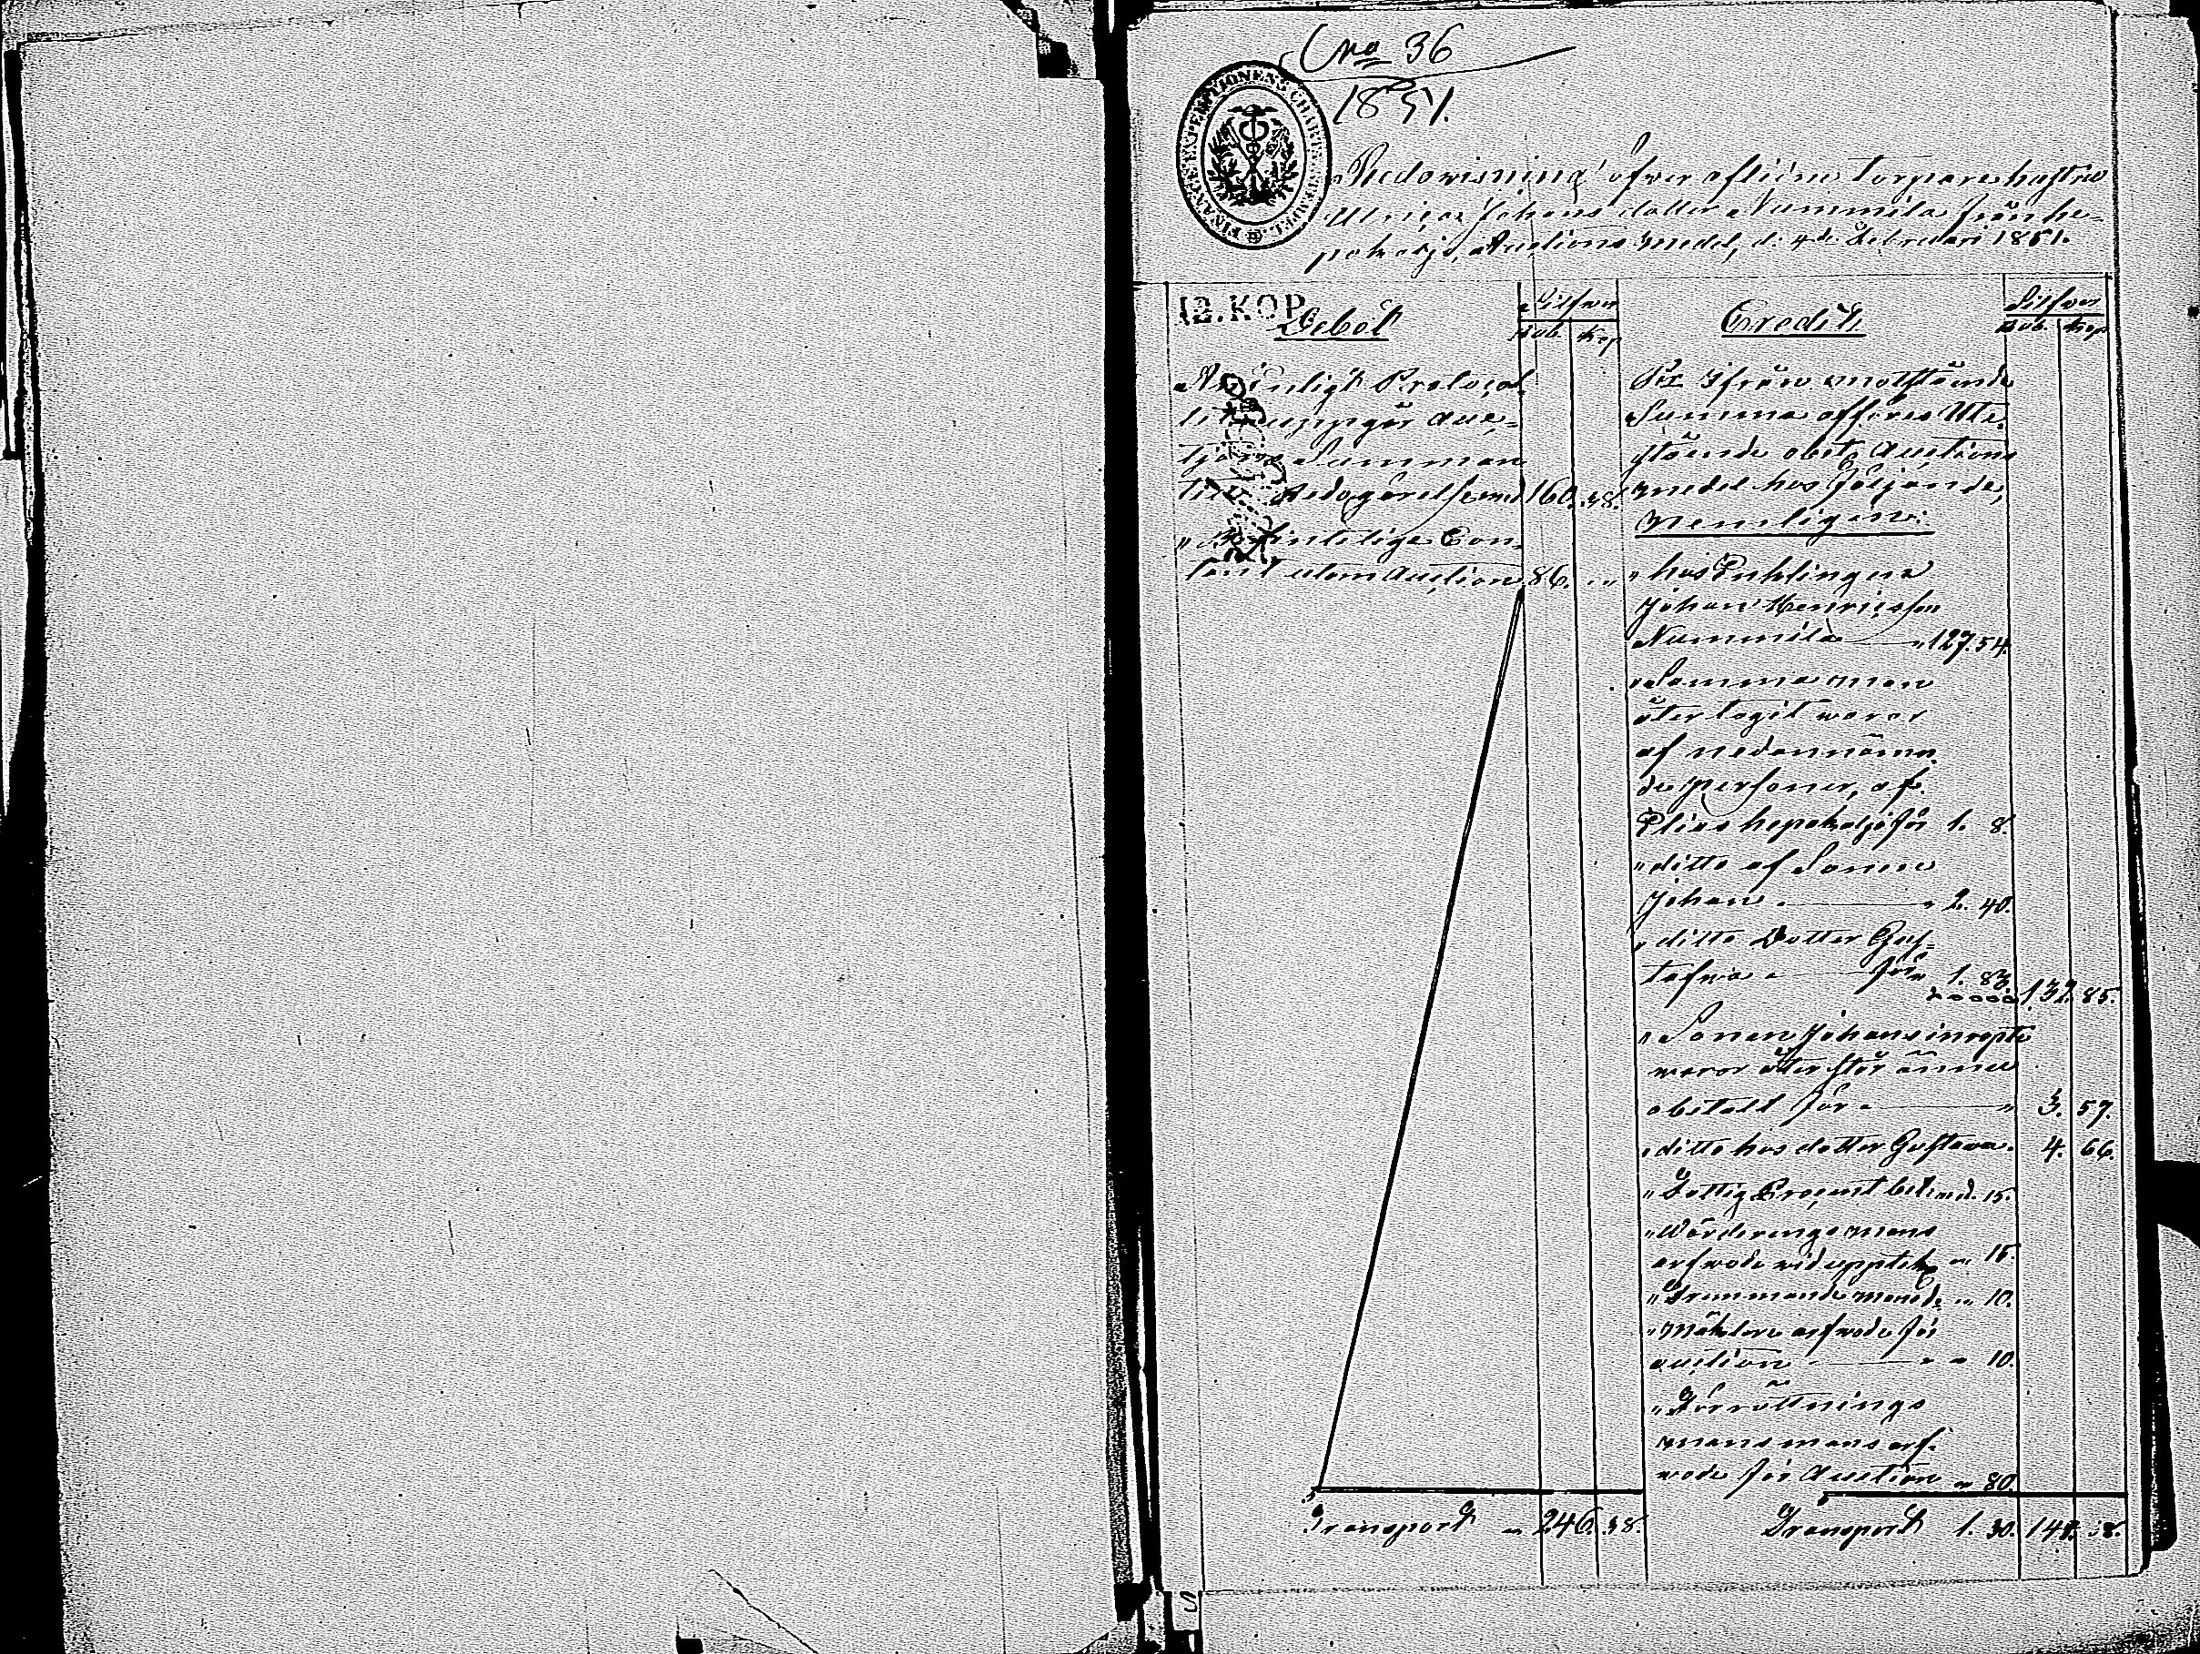 No 36
1851.
FINANCE EXPEDITIONENS CHARTÆ STEMPEL
Redovisning öfver aflidne Torpare hustru
Ulrica Johans dotter Nummila från he-
pokorpi, Auctions medel, d: 4de Februari 1851.
12. KOP
Debet
Silfver
Rub. Kop
Enligt Protocol
uppgår auc-
tions Summan
till Redogörelse med 160. 38.
" Con-
tant utom Auction 86. "
Transport " 246. 38.
Credit
Silfver
Rub. Kop
Per Ifrån motstående
Summa afföres Ute-
stående obet. Auctions
medel hos följande,
nemligen:
" hos Enklingen
Johan Henricsson
Nummila " 127. 54.
" Samma man
återtagit waror
af nedannämn-
de personer, af
Elias hepokorpi för 1. 8.
" ditto af Sonen
Johan " 2. 40.
" ditto Dotter Gus-
tafva för 1. 83. 132. 85.
" Sonen Johans inropte
waror återstår ännu
obetalt för " 3. 57.
" ditto hos dotter Gustava. 4. 66.
" Fattig Procent betand. 15.
" Wärderings mans
arfwode vid uppteckn " 15.
" Frammande mans d: " 10.
" Mäklare arfwode för
auction " 10.
" Förrättnings
mans mans arf-
wode för Auction " 80.
Transport 1. 30. 141. 8.